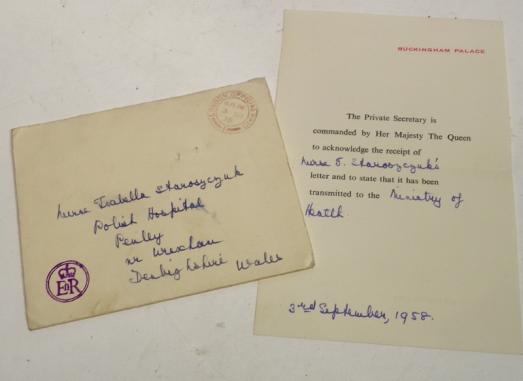 Nurse Isabella Staroszczuk
Polish Hospital
Penley
nr Wrexham
Denbighshire Wales
EIIR
BUCKINGHAM PALACE
The Private Secretary is
commanded by Her Majesty The Queen
to acknowledge the receipt of
Nurse I. Staroszczuk's
letter and to state that it has been
transmitted to the Ministry of
Health.
3rd September, 1958.